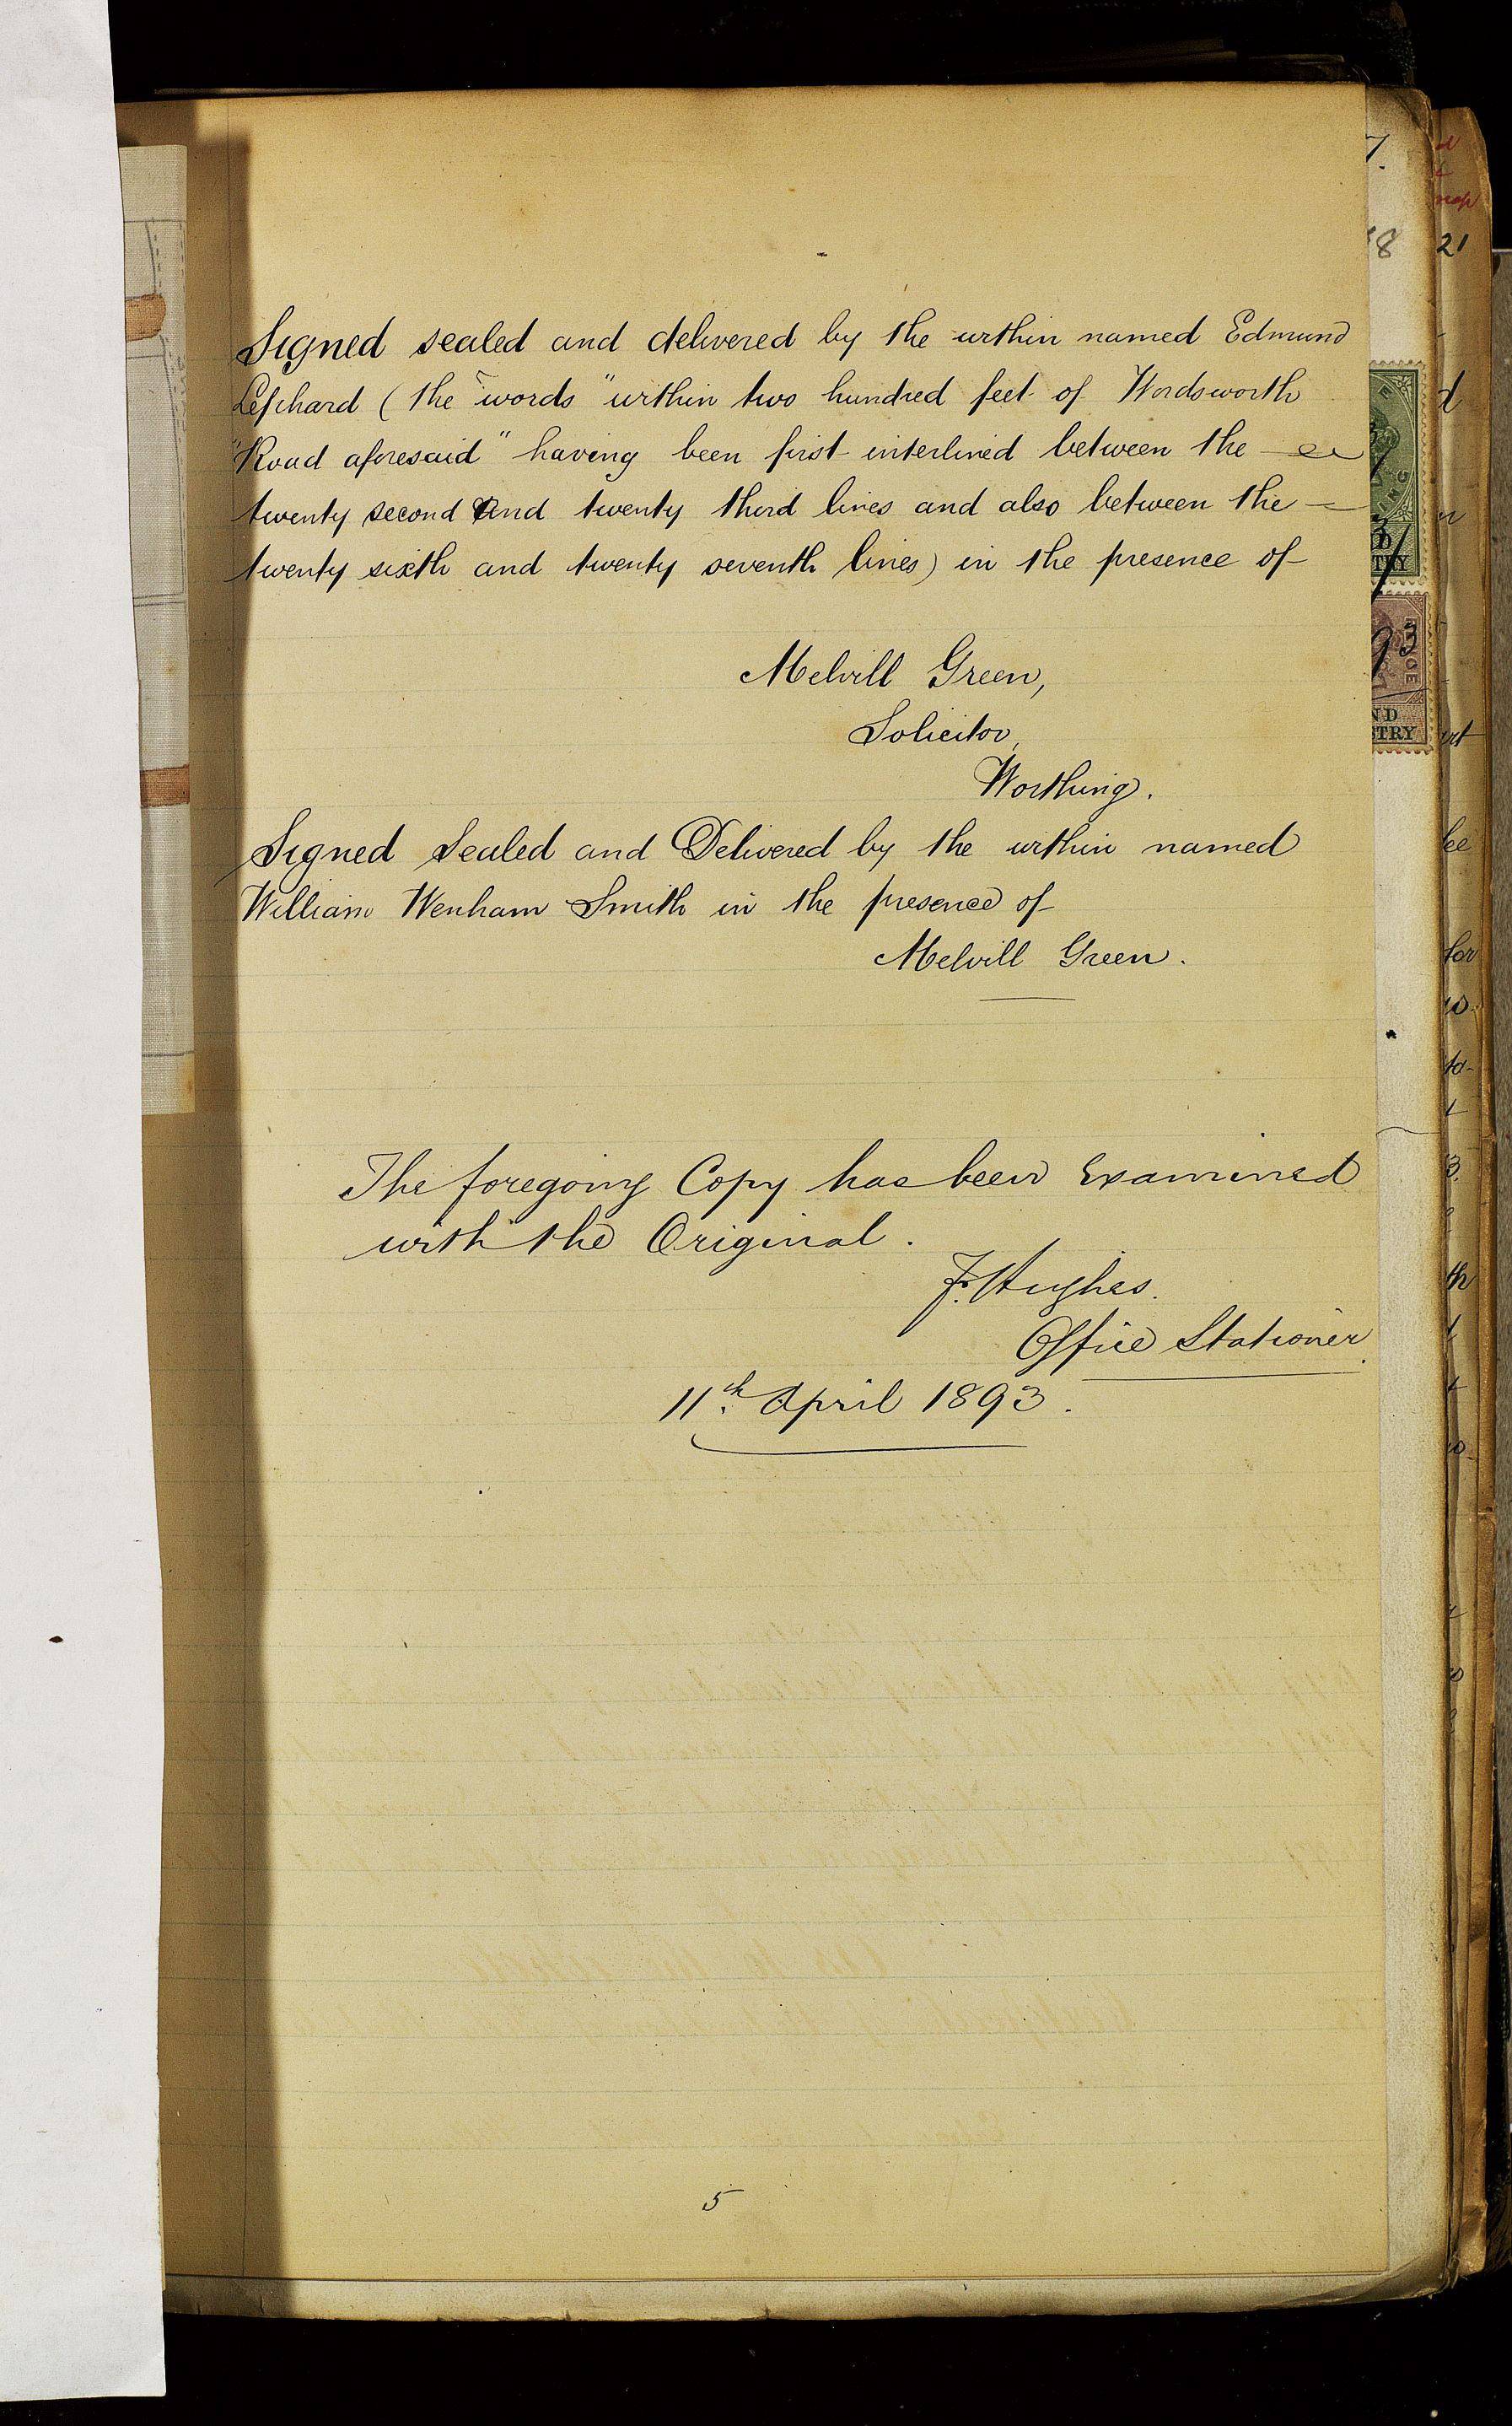 Signed sealed and delivered by the within named Edmund
Lephard (the words "within two hundred feet of Wordsworth
"Road aforesaid" having been first interlined between the
twenty second and twenty third lines and also between the
twenty sixth and twenty seventh lines) in the presence of
Melvill Green,
Solicitor,
Worthing.
Signed Sealed and Delivered by the within named
William Wenham Smith in the presence of
Melvill Green.
The foregoing Copy has been Examined
with the Original.
F. Hughes.
Office Stationer.
11th April 1893.
5
7.
8
21
93